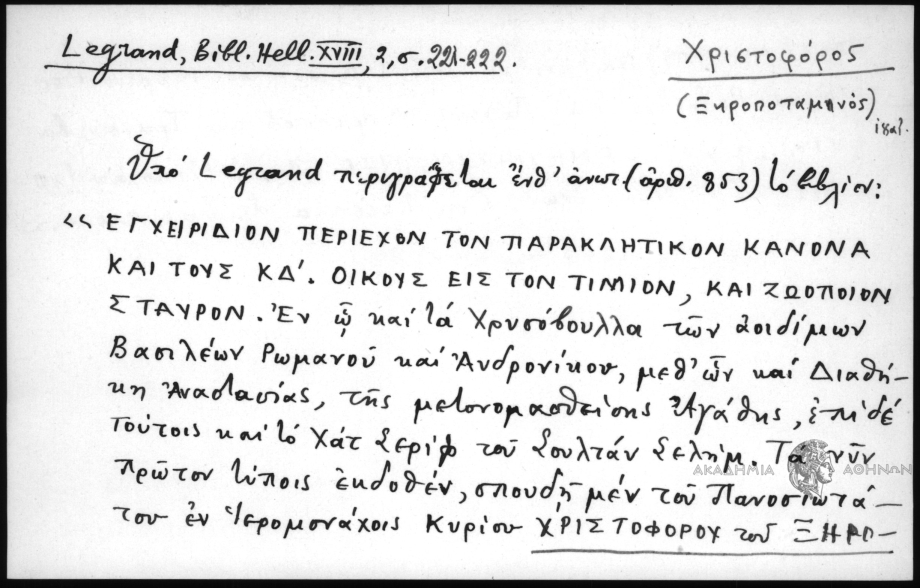 Legrand, Bibl. Hell. XVIII, 2, σ. 221-222.
Χριστοφόρος
(Ξηροποταμηνός)
Ὑπό Legrand περιγράφεται ἐνθ' ἀνωτ. (ἀριθ. 853) τό βιβλίον:
«ΕΓΧΕΙΡΙΔΙΟΝ ΠΕΡΙΕΧΟΝ ΤΟΝ ΠΑΡΑΚΛΗΤΙΚΟΝ ΚΑΝΟΝΑ
ΚΑΙ ΤΟΥΣ ΚΔ'. ΟΙΚΟΥΣ ΕΙΣ ΤΟΝ ΤΙΜΙΟΝ, ΚΑΙ ΖΩΟΠΟΙΟΝ
ΣΤΑΥΡΟΝ. Ἐν ᾧ καί τά Χρυσόβουλλα τῶν ἀοιδίμων
Βασιλέων Ρωμανοῦ καί Ἀνδρονίκου, μεθ' ὧν καί Διαθή-
κη Ἀναστασίας, τῆς μετονομασθείσης Ἀγάθης, ἐπί δέ
τούτοις καί τό Χάτ Σερίφ τοῦ Σουλτάν Σελήμ. Τά νῦν
πρῶτον τύποις ἐκδοθέν, σπουδῇ μέν τοῦ Πανοσιωτά-
του ἐν Ἱερομονάχοις Κυρίου ΧΡΙΣΤΟΦΟΡΟΥ τοῦ ΞΗΡΟ-
ΑΚΑΔΗΜΙΑ ΑΘΗΝΩΝ